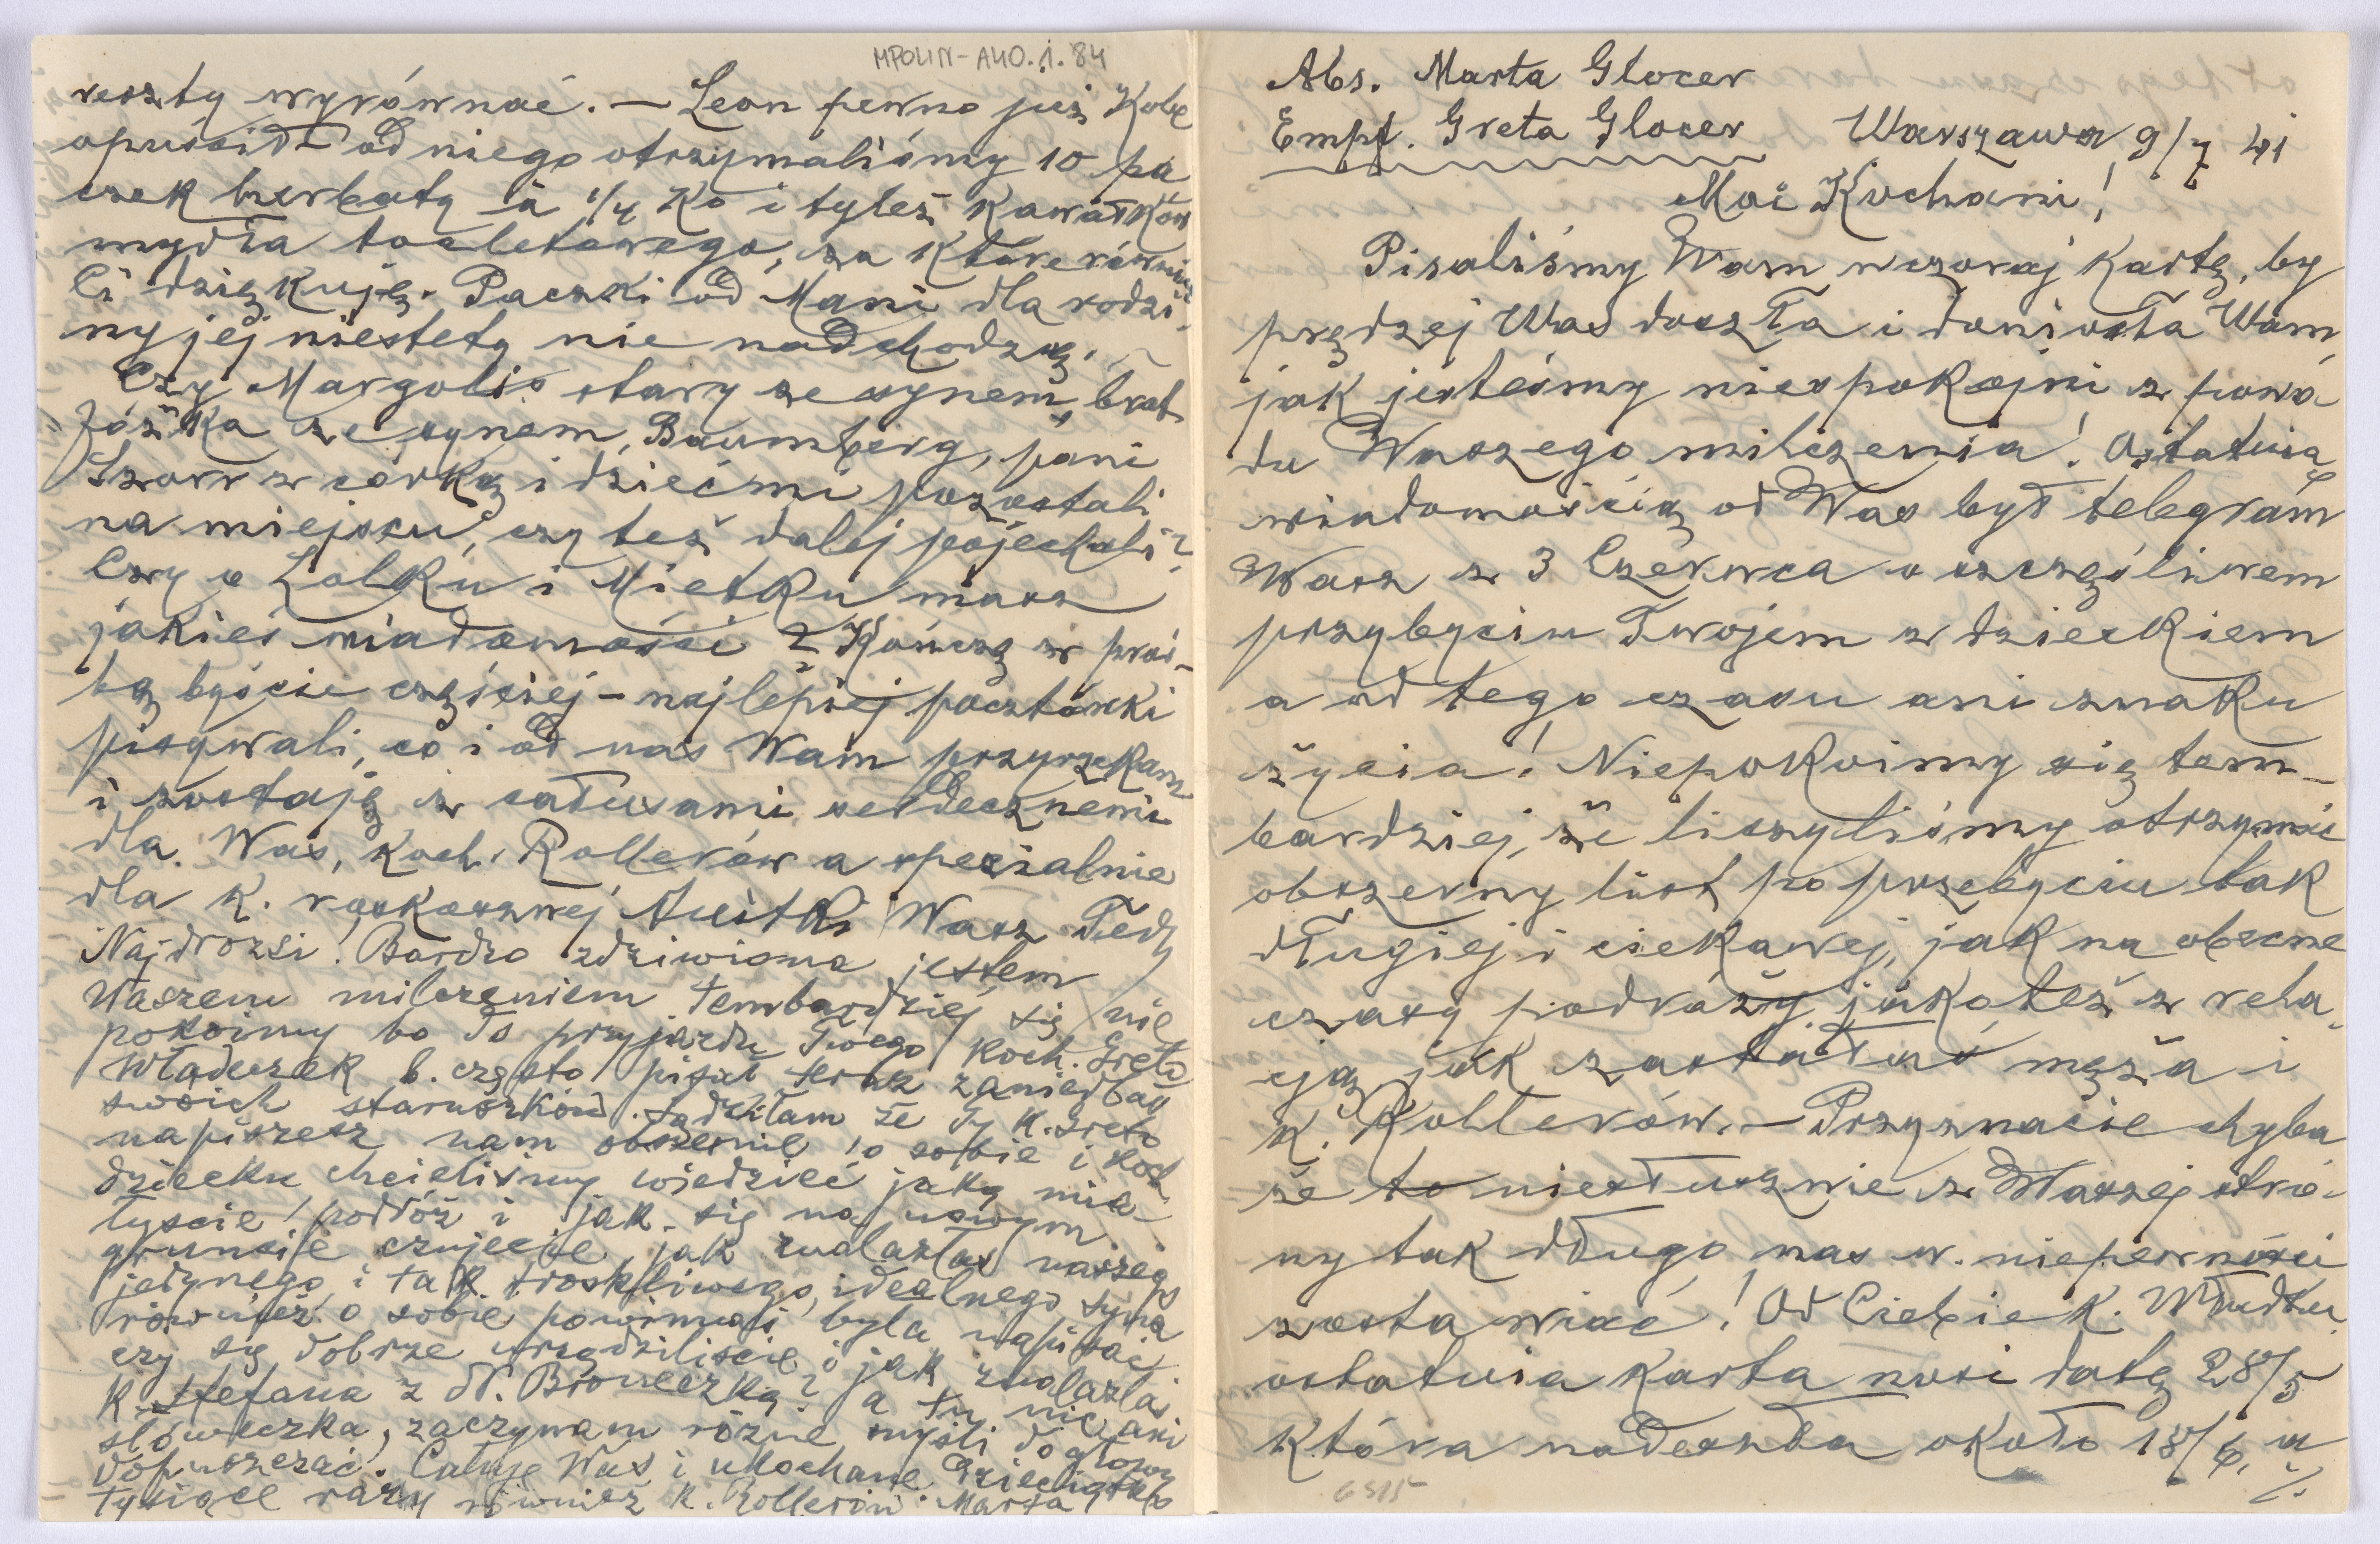 Abs. Marta Glocer
Empf. Greta Glocer Warszawa 9/7 41
Moi Kochani!
Pisaliśmy Wam wczoraj kartę, by
prędzej Was doszła i doniosła Wam,
jak jesteśmy niespokojni z powo
du Waszego milczenia! Ostatnią
wiadomością od Was był telegram
Wasz z 3 Czerwca o szczęśliwem
przybyciu Twojem z dzieckiem
a od tego czasu ani znaku
życia! Niepokoimy się tem-
bardziej, że liczyliśmy otrzymać
obszerny list po przebyciu tak
długiej i ciekawej, jak na obecne
czasy podróży, jakoteż z rela
cją jak zastałaś męża i
K. Rollerów. – Przyznacie chyba
że to niesłusznie z Waszej stro-
ny tak długo nas w niepewności
zostawiać! Od Ciebie k. Władku
ostatnia karta nosi datę 28/5
która nadeszła około 18/6, a
./.
6515
MPOLIN-A40.1.84
reszty wyrównać. – Leon pewno już Kobe
opuścił od niego otrzymaliśmy 10 pa
czek herbaty à 1/4 Ko i tyleż kawałków
mydła toaletowego, za które również
Ci dziękuję. Paczki od Mani dla rodzi-
ny jej niestety nie nadchodzą. –
Czy Margolis stary ze synem, brat
Józka ze synem, Baumberg, pani
Szorr z córką i dziećmi pozostali
na miejscu, czy też dalej pojechali?
Czy o Lolku i Mietku masz
jakieś wiadomości? Kończę z proś-
bą byście częściej – najlepiej pocztówki
pisywali, co i od nas Wam przyrzekam
i zostaję z całusami serdecznemi
dla Was, Koch. Rollerów a specialnie
dla K. roskosznej Anitki Wasz
Najdrożsi! Bardzo zdziwiona jestem
Waszem milczeniem tembardziej się nie
pokoimy bo do przyjazdu Twego Koch. Greto
Władeczek b. często pisał teraz zaniedbał
swoich staruszków. Sądziłam że Ty K. Greto
napiszesz nam obszernie o sobie i Koch.
dziecku chcieliśmy wiedzieć jaką mia-
łyście podróż i jak się na nowym
gruncie czujecie, jak znalazłaś naszego
jedynego i tak troskliwego, idealnego syna
również o sobie powinnaś była napisać
czy się dobrze urządziliście i jak znalazłaś
K. Stefana z N. Broneczką? a tu nic ani
słóweczka, zaczynam różne myśli do głowy
dopuszczać. Całuję Was i ukochane dzieciątko
tysiące razy również K. Rollerów. Marta